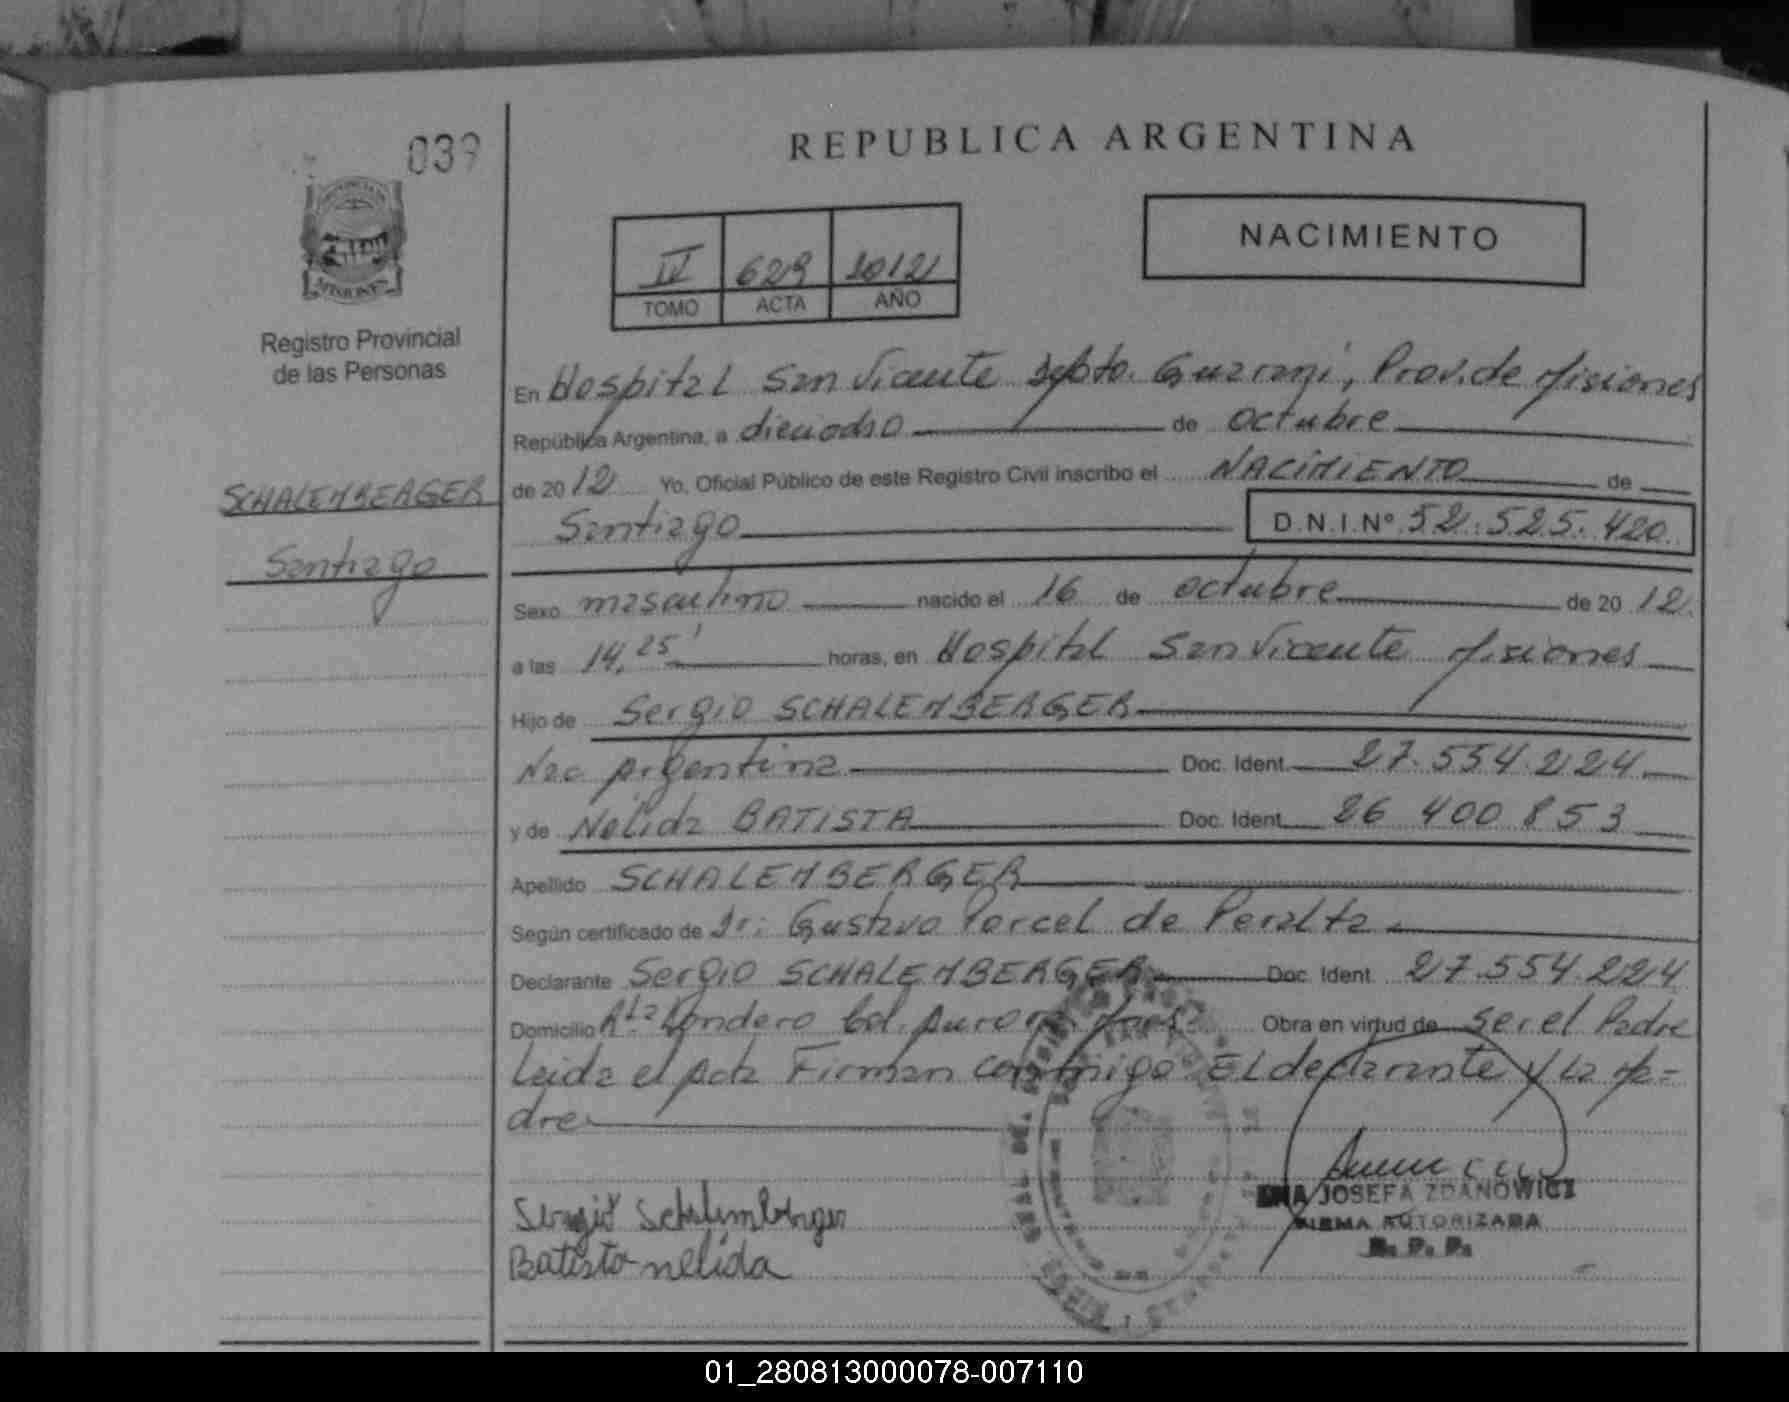 039
REPUBLICA ARGENTINA
NACIMIENTO
IV 629 2012
TOMO ACTA AÑO
MISIONES
Registro Provincial
de las Personas
En Hospital San Vicente Dpto. Guarani, Prov. de Misiones
República Argentina, a dieciocho de octubre
de 2012 Yo, Oficial Público de este Registro Civil inscribo el NACIMIENTO de
SCHALEMBERGER
Santiago
Santiago D.N.I.Nº 52.525.420
Sexo masculino nacido el 16 de octubre de 2012
a las 14,25' horas, en Hospital San Vicente Misiones
Hijo de Sergio SCHALEMBERGER
Nac Argentina Doc. Ident. 27.554.224
y de Nelida BATISTA Doc. Ident. 26 400 853
Apellido SCHALEMBERGER
Según certificado de Dr: Gustavo Porcel de Peralta
Declarante Sergio SCHALEMBERGER Doc. Ident. 27.554.224
Domicilio Obra en virtud de ser el Padre
Leida el acta Firman conmigo El declarante y la Ma=
dre
Sergio Schalemberger
Batista nelida
JOSEFA ZDANOWICZ
FIRMA AUTORIZADA
R. P. P.
01_280813000078-007110